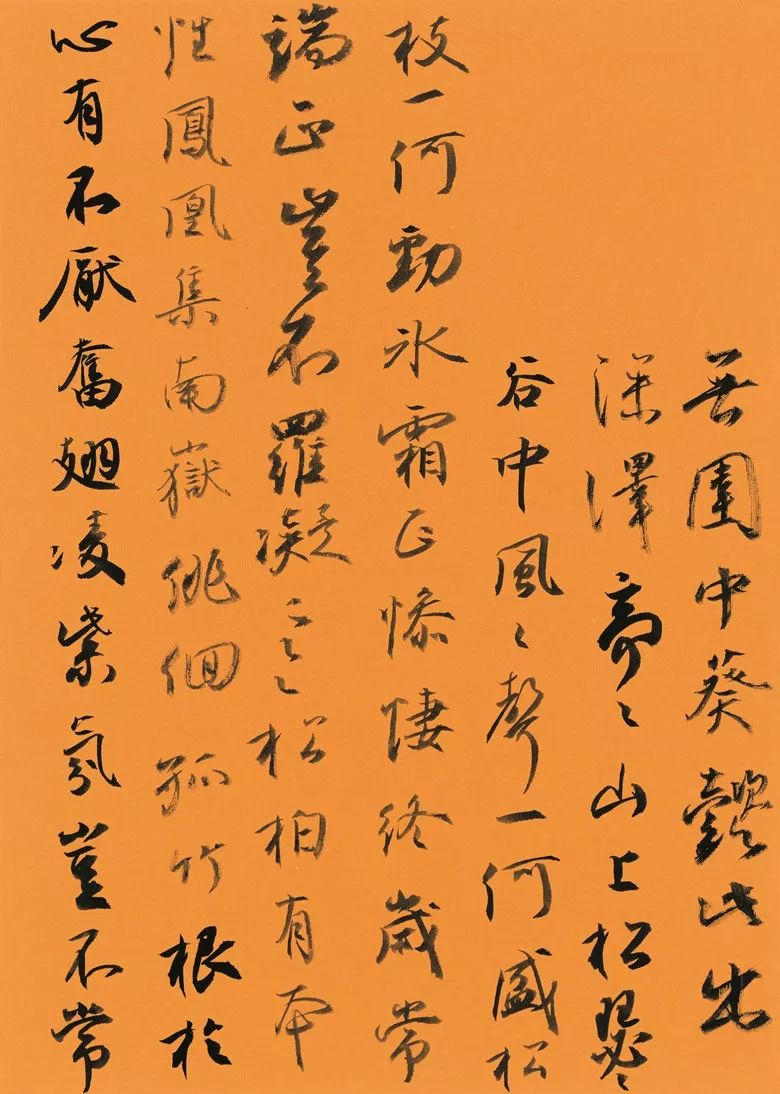 無園中葵懿此出
深澤亭〻山上松瑟〻
谷中風〻聲一何盛松
枝一何勁冰霜正慘悽終歲常
端正豈不羅凝寒松柏有本
性鳳凰集南嶽徘徊孤竹根於
心有不厭奮翅凌紫氛豈不常